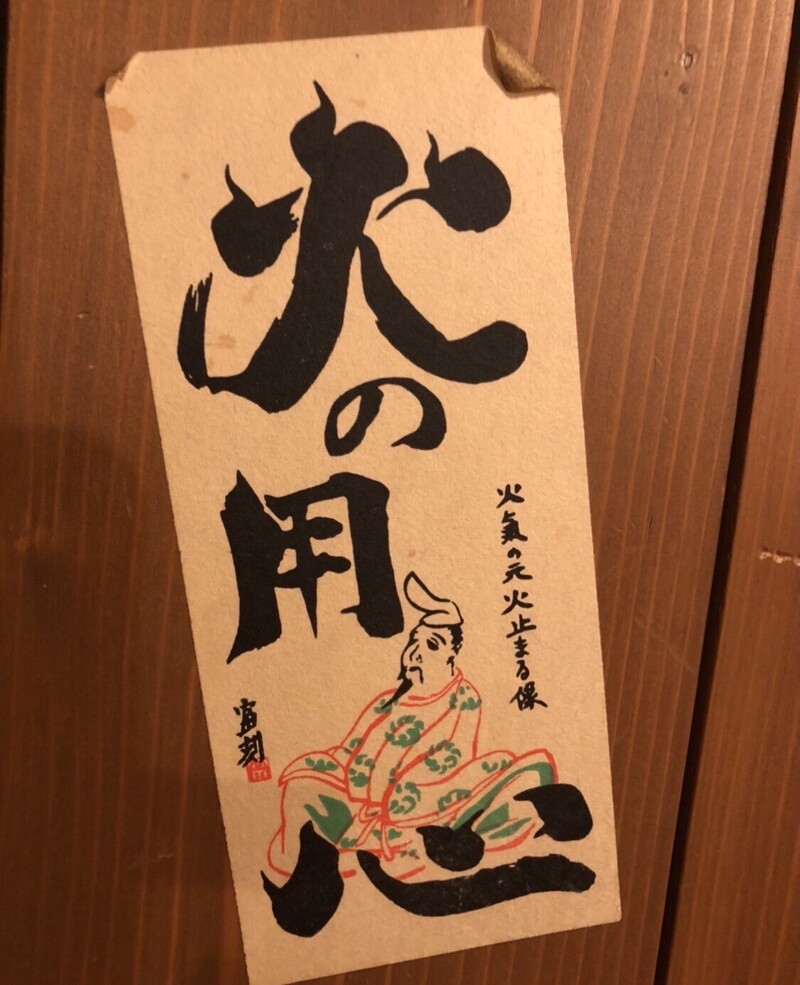 火の用心
火氣の元火止まる像